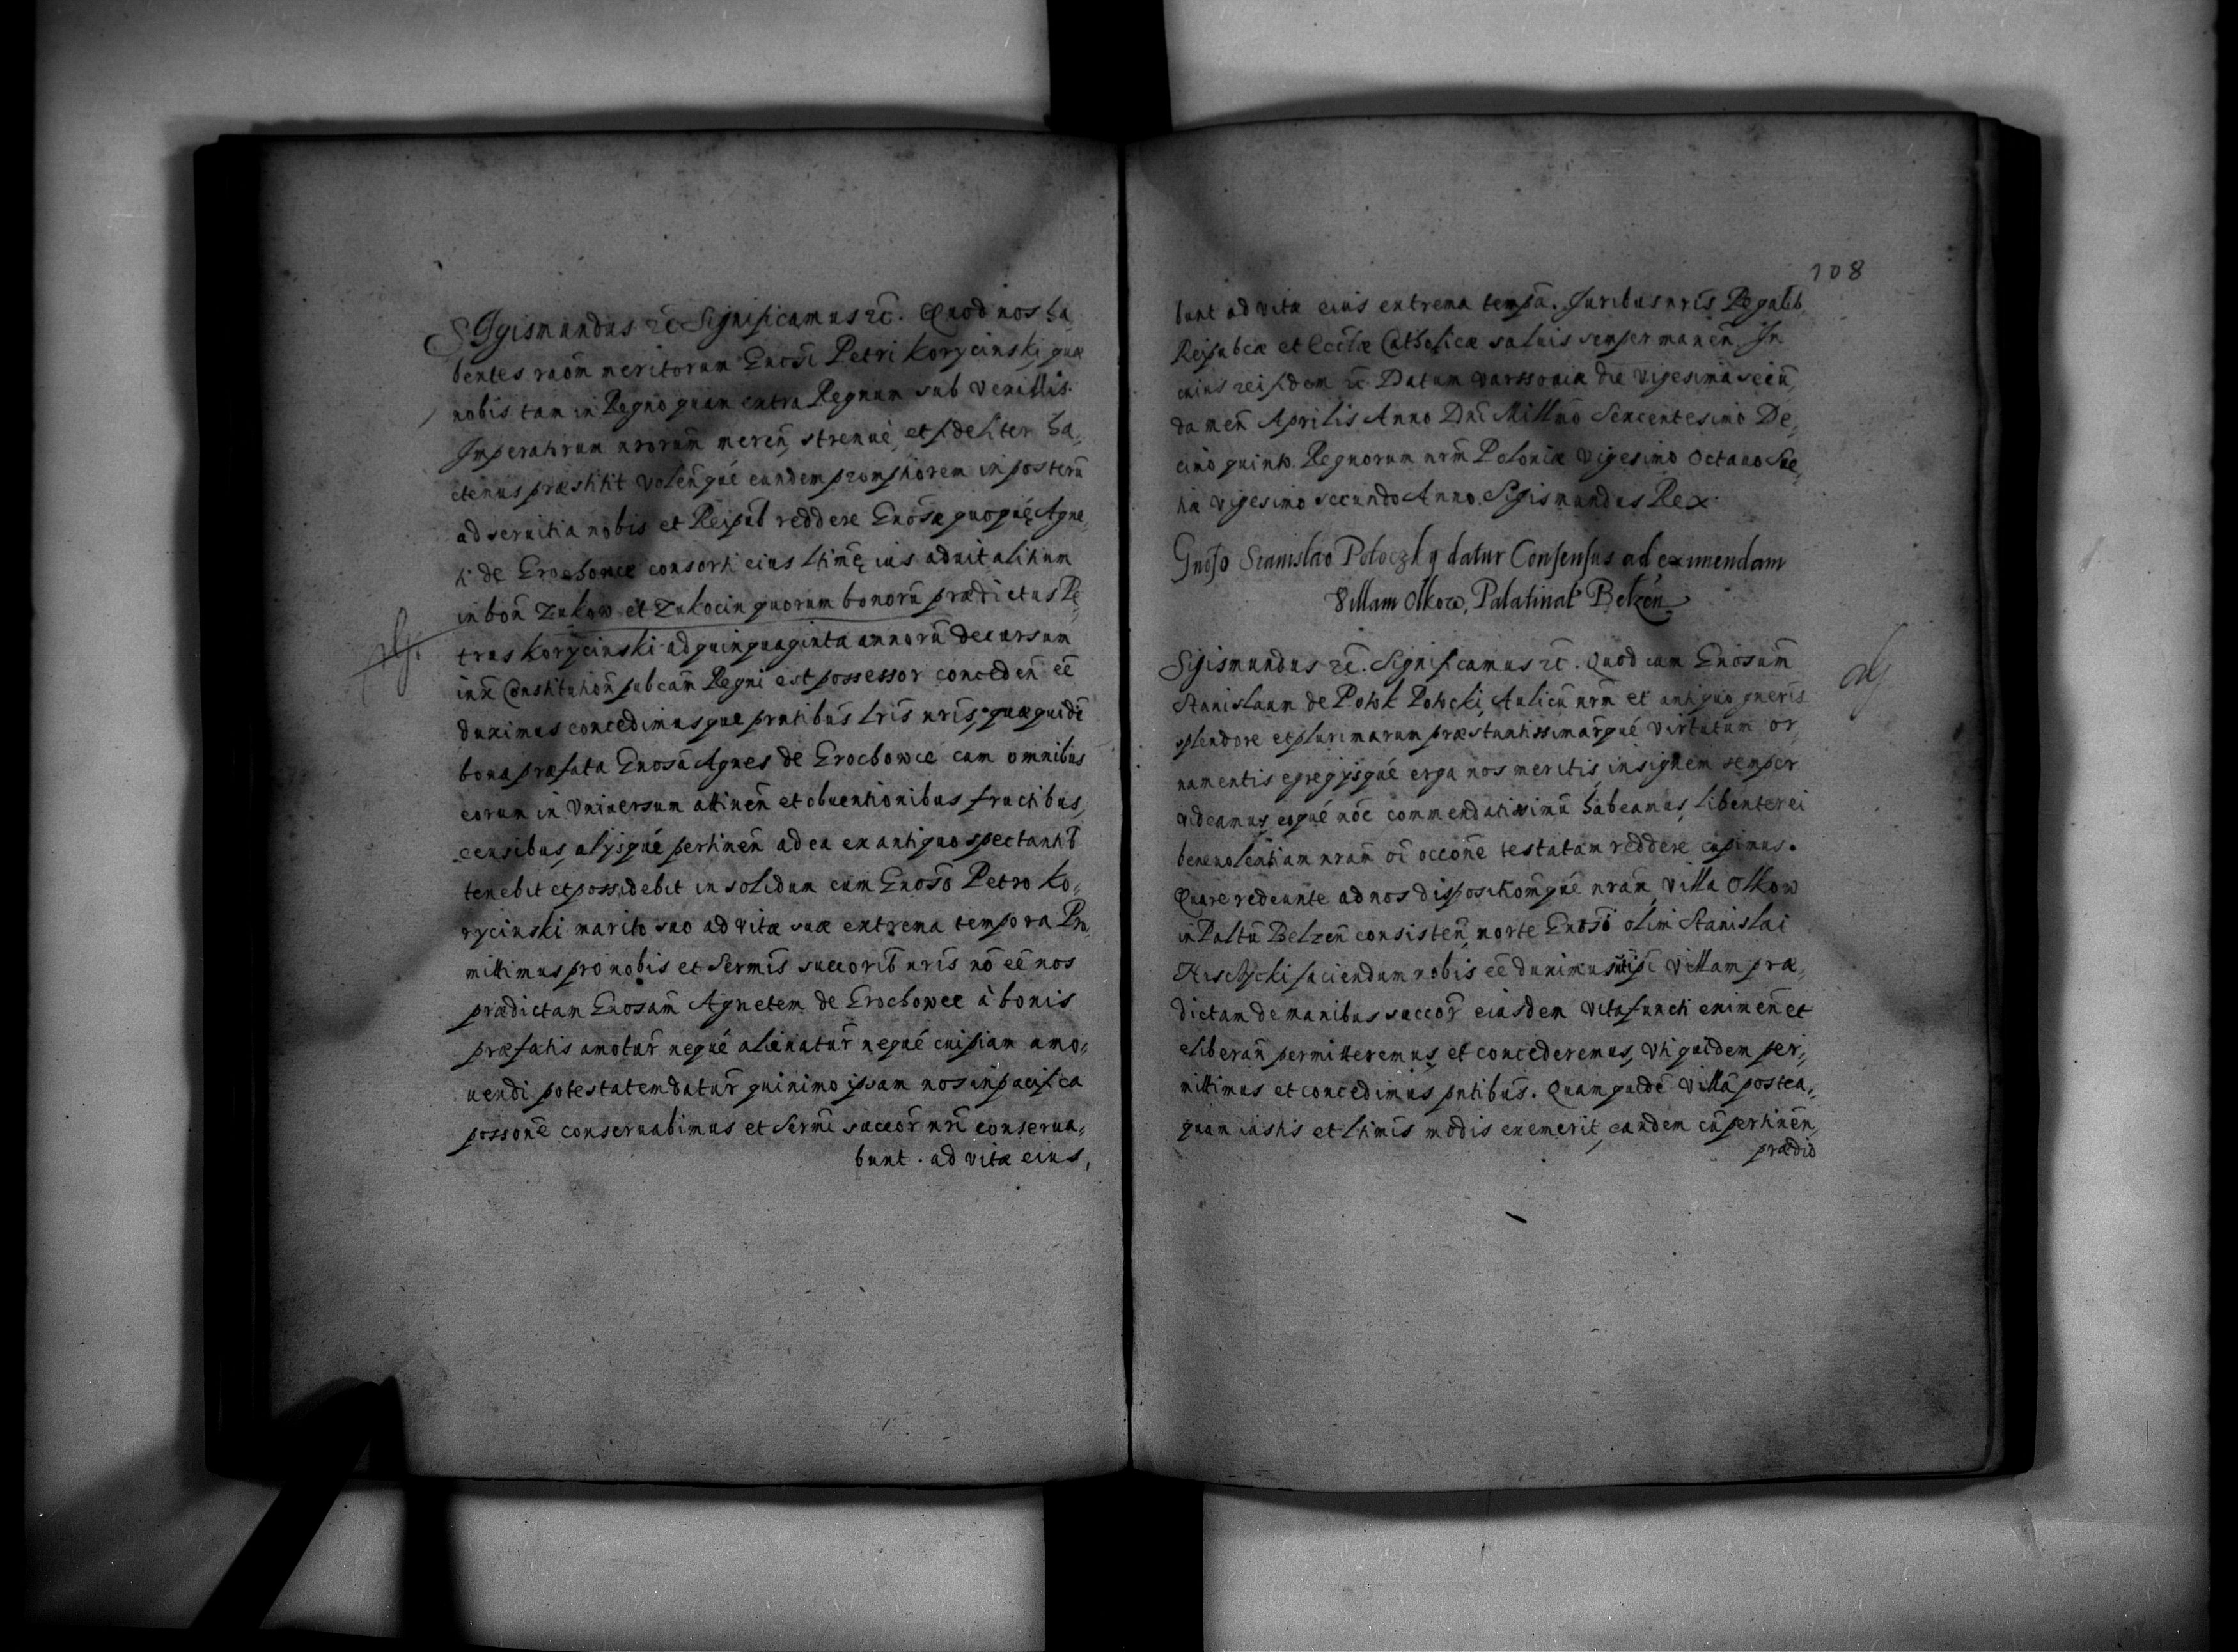 Sigismundus etc Significamus etc. Quod nos ha,
bentes raōm meritorum Gnōsi Petri Korycinski, quæ
nobis tam in Regno quam extra Regnum sub vexillis
Imperatorum nrorum meren̄, strenue, et fideliter ha,
ctenus præstitit volen̄qué eundem promptiorem in posterū
ad seruitia nobis et Reipub reddere Gnōsæ quoqué Agne,
ti de Grochowce consorti eius ltimę ius aduitalitium
in bon̄ Zukow et Zukocin quorum bonorū prædictus Pe,
trus Korycinski ad quinquaginta annorū decursum
iux̄ Constitution̄ pubcam̄ Regni est possessor conceden̄ eē
duximus concedimusque pntibus̄ lris̄ nris̄, quæ quidē
bona præfata Gnosā Agnes de Grochowce cum omnibus
eorum in vniuersum attinen̄ et obuentionibus fructibus,
censibus, alÿsqué pertinen̄ ad ea ex antiquo spectantib̄
tenebit et possidebit in solidum cum Gnōso Petro Ko,,
rycinski marito suo ad vitæ suæ extrema tempora Pro,
mittimus pro nobis et Sermis̄ succorib̄ nris̄ nō eē nos
prædictam Gnosam̄ Agnetem de Grochowce à bonis
præfatis amotur̄ nequé alienatur̄ nequé cuipiam amo,,
uendi potestatem datur̄ quinimo ipsam nos in pacifica
possonē conseruabimus et Sermī succor̄ nrī conserua,,
bunt. ad vitæ eius,
108
bunt ad vitæ eius extrema tempā. Juribus nris̄ Regalib,
Reipubcæ et Ecclæ Catholicæ saluis semper manen̄. In
cuius rei fidem etc. Datum Varssouiæ die Vigesima secūn,
da men̄ Aprilis Anno Dnī Millmō Sexcentesimo De,
cimo quinto. Regnorum nrm̄ Poloniæ Vigesimo octauo Sue,
tiæ vigesimo secundo Anno. Sigismundus Rex.
Gnoso Stanislao Potoczky datur Consensus ad eximendam
Villam Olkow, Palatinat Belzen̄
Sigismundus etc. Significamus etc. Quod cum Gnosum̄
Stanislaum de Potok Potocki, Aulicū nrm̄ et antiquo gneris̄
splendore et plurimarum præstantissimar̄qué virtutum or,
namentis egregÿsqué erga nos meritis, insignem semper
videamus, eoqué nōe commendatissimū habeamus, libenter ei
beneuolentiam nram̄ oī occonē testatam reddere cupimus.
Quare redeunte ad nos dispositiom̄qué nram̄, villa Olkow
in Paltū Belzen̄ consisten̄, morte Gnōsi olim Stanislai
faciendum nobis eē duximus villam præ,,
dictam de manibus succor̄ eiusdem vita functi eximen̄ et
eliberan̄ permitteremus, et concederemus, vti quidem per,,
mittimus et concedimus pntibus̄. Quam quidē villā postea,,
quam iustis et ltimis̄ modis exemerit, eandem cū pertinen̄,
prædio